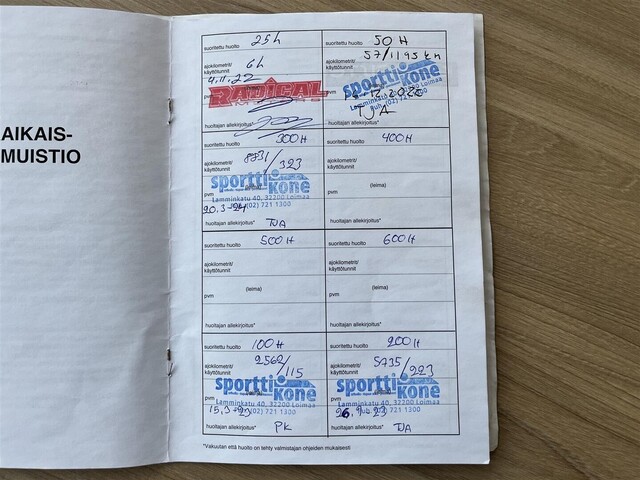 AIKAIS-
MUISTIO
suoritettu huolto 25h
ajokilometrit/
käyttötunnit 6h
4.11.22
pvm
RADICAL
huoltajan allekirjoitus*
suoritettu huolto 50 H
ajokilometrit/
käyttötunnit 57/1195 km
sportti kone
Lamminkatu
(02) 721
TJA
suoritettu huolto 300 H
ajokilometrit/
käyttötunnit 8731/323
sportti kone
pvm
Lamminkatu 40, 32200 Loimaa
(02) 721 1300
20.3-24
huoltajan allekirjoitus* TJA
suoritettu huolto 400 H
ajokilometrit/
käyttötunnit
(leima)
pvm
huoltajan allekirjoitus*
suoritettu huolto 500 H
ajokilometrit/
käyttötunnit
(leima)
pvm
huoltajan allekirjoitus*
suoritettu huolto 600 H
ajokilometrit/
käyttötunnit
(leima)
pvm
huoltajan allekirjoitus*
suoritettu huolto 100 H
ajokilometrit/
käyttötunnit 2562/115
sportti kone
Lamminkatu 40, 32200 Loimaa
(02) 721 1300
15.3-23
huoltajan allekirjoitus* PK
suoritettu huolto 200 H
ajokilometrit/
käyttötunnit 5735/223
sportti kone
Lamminkatu 40, 32200 Loimaa
(02) 721 1300
huoltajan allekirjoitus* TJA
*Vakuutan että huolto on tehty valmistajan ohjeiden mukaisesti